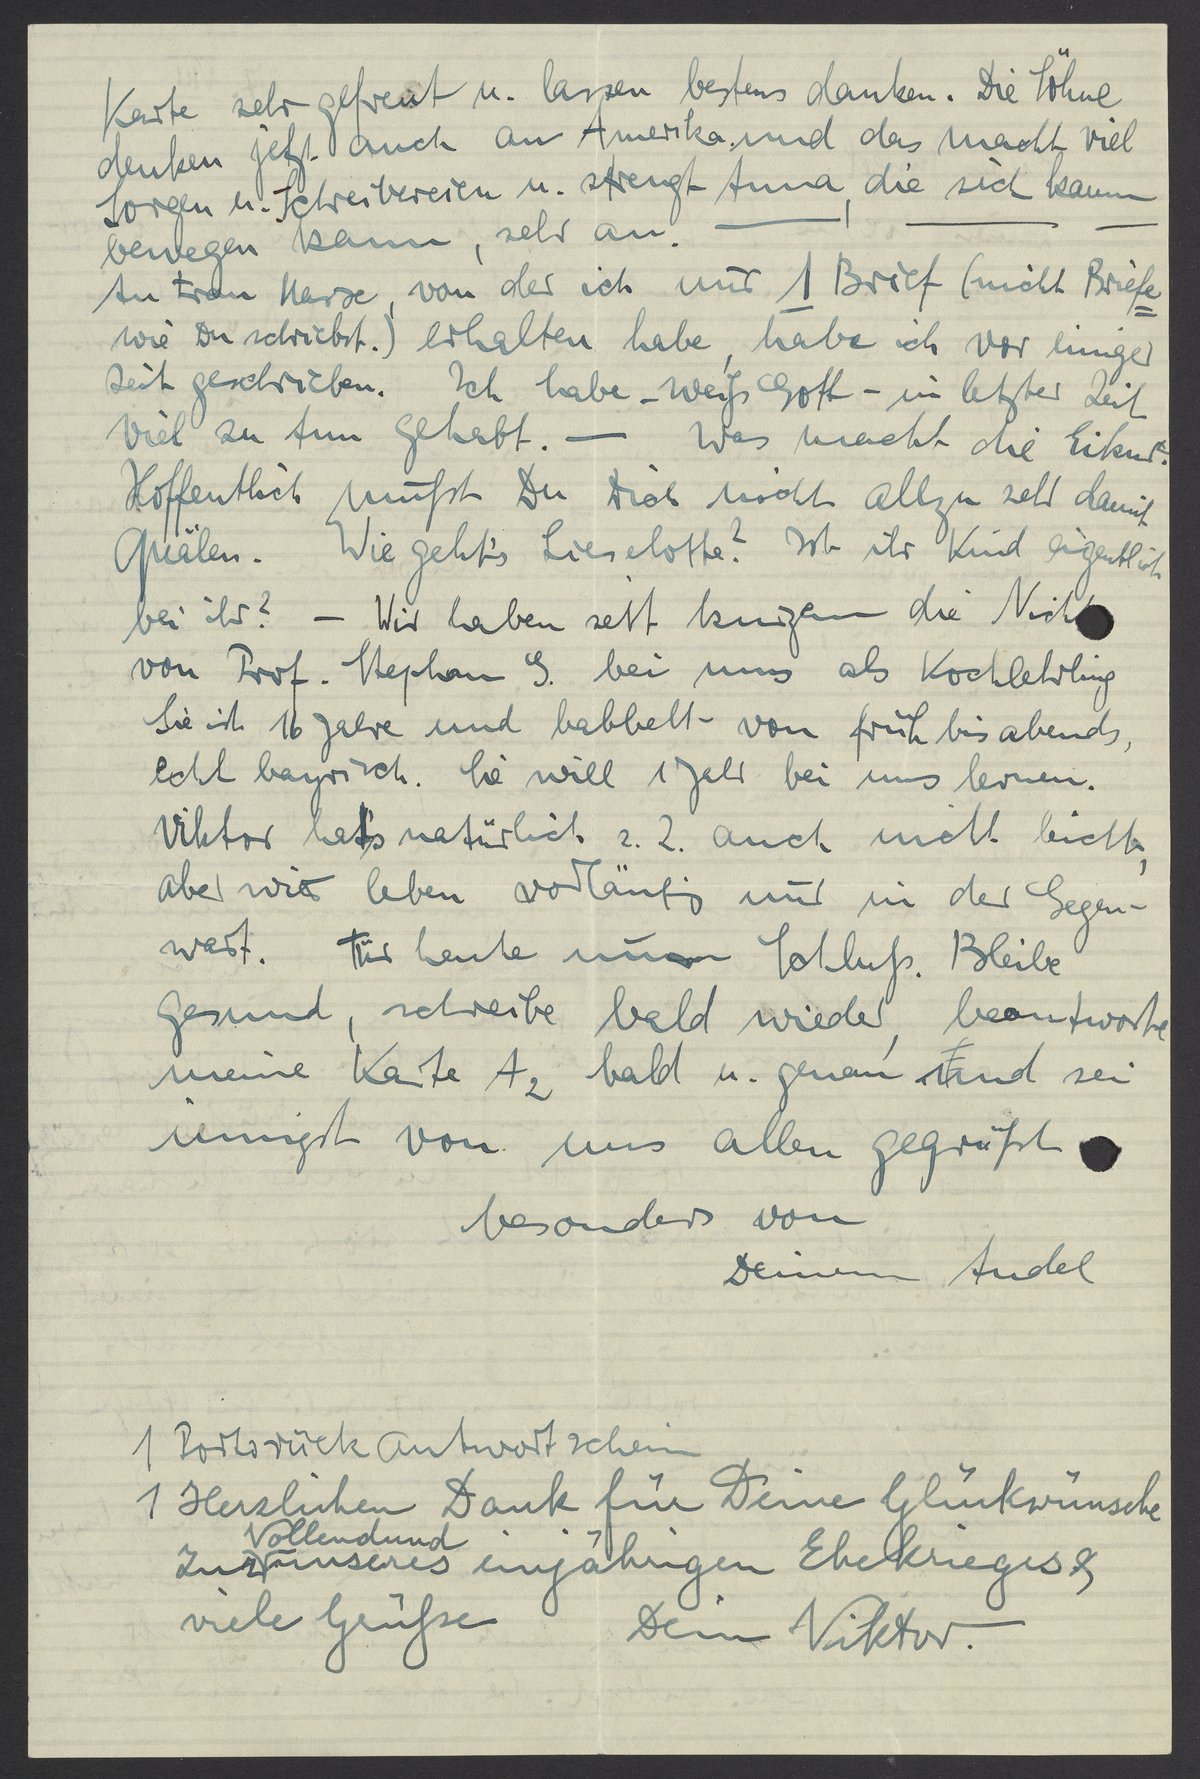 Karte sehr gefreut u. lassen bestens danken. Die Söhne
denken jetzt auch an Amerika und das macht viel
Sorgen u. Schreibereien u. strengt Anna, die sich kaum
bewegen kann, sehr an. —
An Frau Marx, von der ich nur 1 Brief (nicht Briefe
wie Du schriebst.) erhalten habe, habe ich vor einiger
Zeit geschrieben. Ich habe – weiß Gott – in letzter Zeit
viel zu tun gehabt. — Was macht die
Hoffentlich mußt Du Dich nicht allzu sehr damit
quälen. Wie geht's Lieselotte? Ist ihr Kind eigentlich
bei ihr? — Wir haben seit kurzem die Nicht
von Prof. Stephan G. bei uns als Kochlehrling
Sie ist 16 Jahre und babbelt von früh bis abends,
echt bayrisch. Sie will 1 Jahr bei uns lernen.
Viktor hat's natürlich z. Z. auch nicht leicht,
aber wir leben vorläufig nur in der Gegen-
wart. Für heute nun Schluß. Bleibe
gesund, schreibe bald wieder, beantworte
meine Karte A2 bald u. genau und sei
innigst von uns allen gegrüßt
besonders von
Deinem Andel
1 Portorückantwortschein
1 Herzlichen Dank für Deine Glückwünsche
Vollendund
zur unseres einjährigen Ehekrieges &
viele Grüße Dein Viktor.—